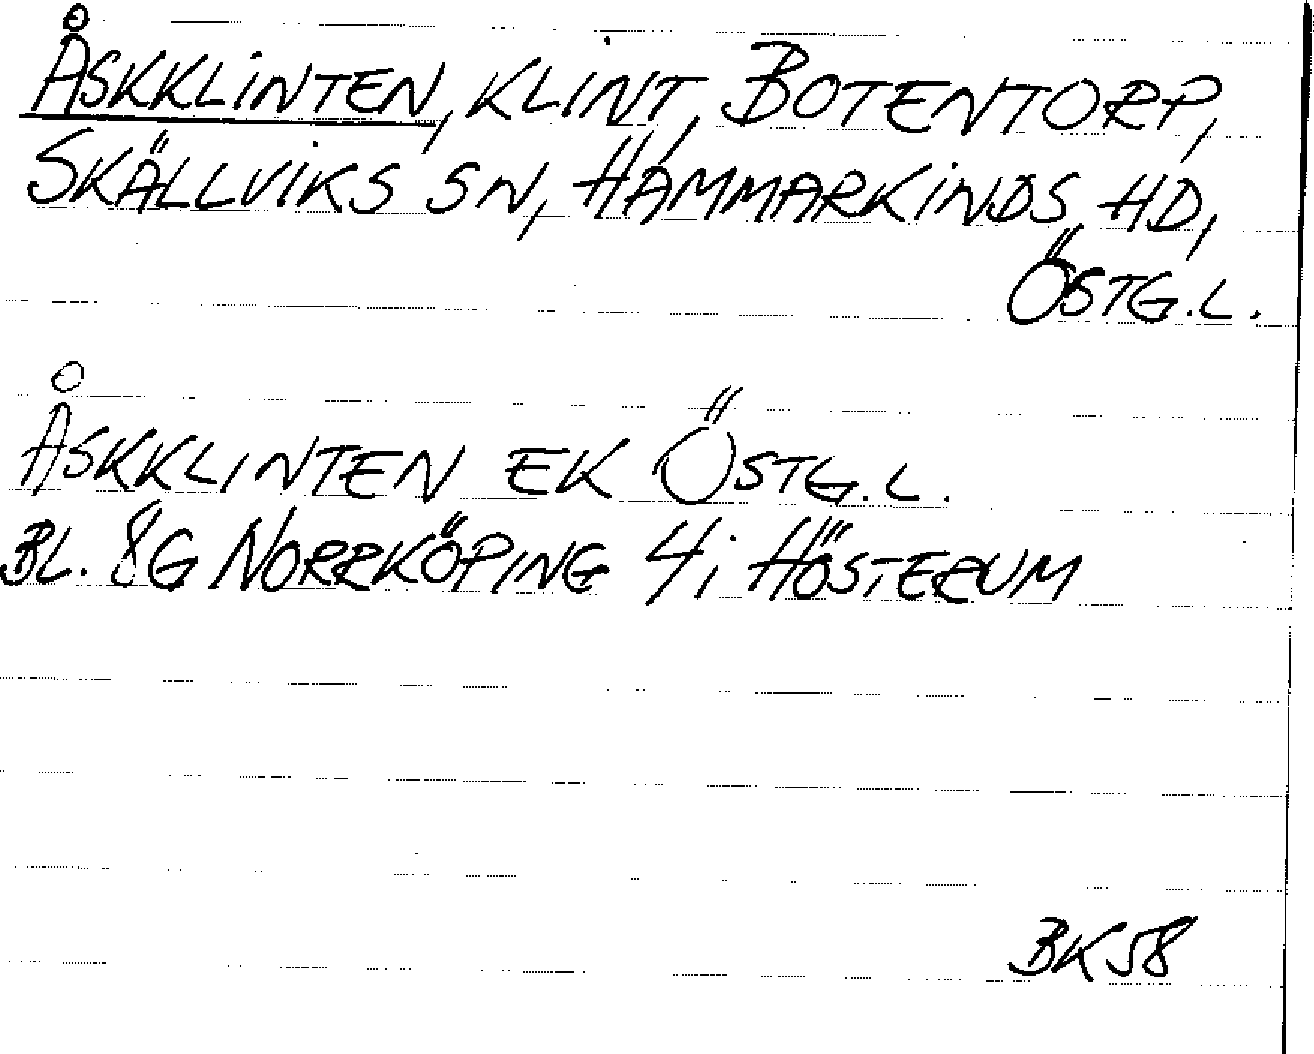 ÅSKKLINTEN, KLINT, BOTENTORP,
SKÄLLVIKS SN, HAMMARKINDS HD,
ÖSTG.L.
ÅSKKLINTEN EK ÖSTG.L.
BL. 8G NORRKÖPING 4i HÖSTERUM
BK58